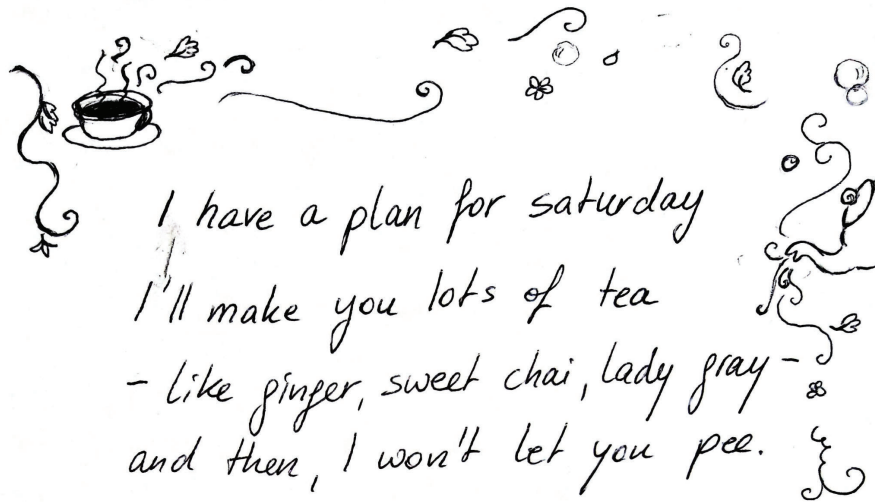 I have a plan for saturday
I'll make you lots of tea
- like ginger, sweet chai, lady gray -
and then, I won't let you pee.